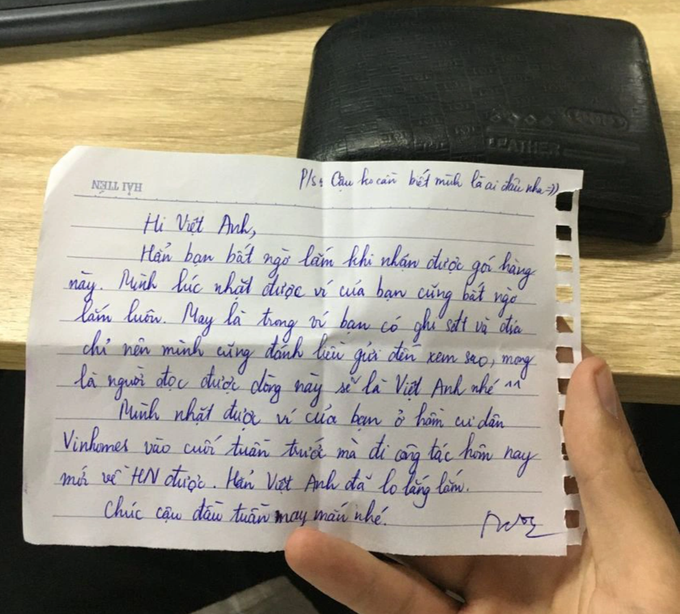 P/s: Cậu ko cần biết mình là ai đâu nha =))
HẢI TIẾN
Hi Việt Anh,
Hẳn bạn bất ngờ lắm khi nhận được gói hàng
này. Mình lúc nhặt được ví của bạn cũng bất ngờ
lắm luôn. May là trong ví bạn có ghi sđt và địa
chỉ nên mình cũng đánh liều gửi đến xem sao, mong
là người đọc được dòng này sẽ là Việt Anh nhé ^^
Mình nhặt được ví của bạn ở hầm cư dân
Vinhomes vào cuối tuần trước mà đi công tác hôm nay
mới về HN được. Hẳn Việt Anh đã lo lắng lắm.
Chúc cậu đầu tuần may mắn nhé.
LEATHER